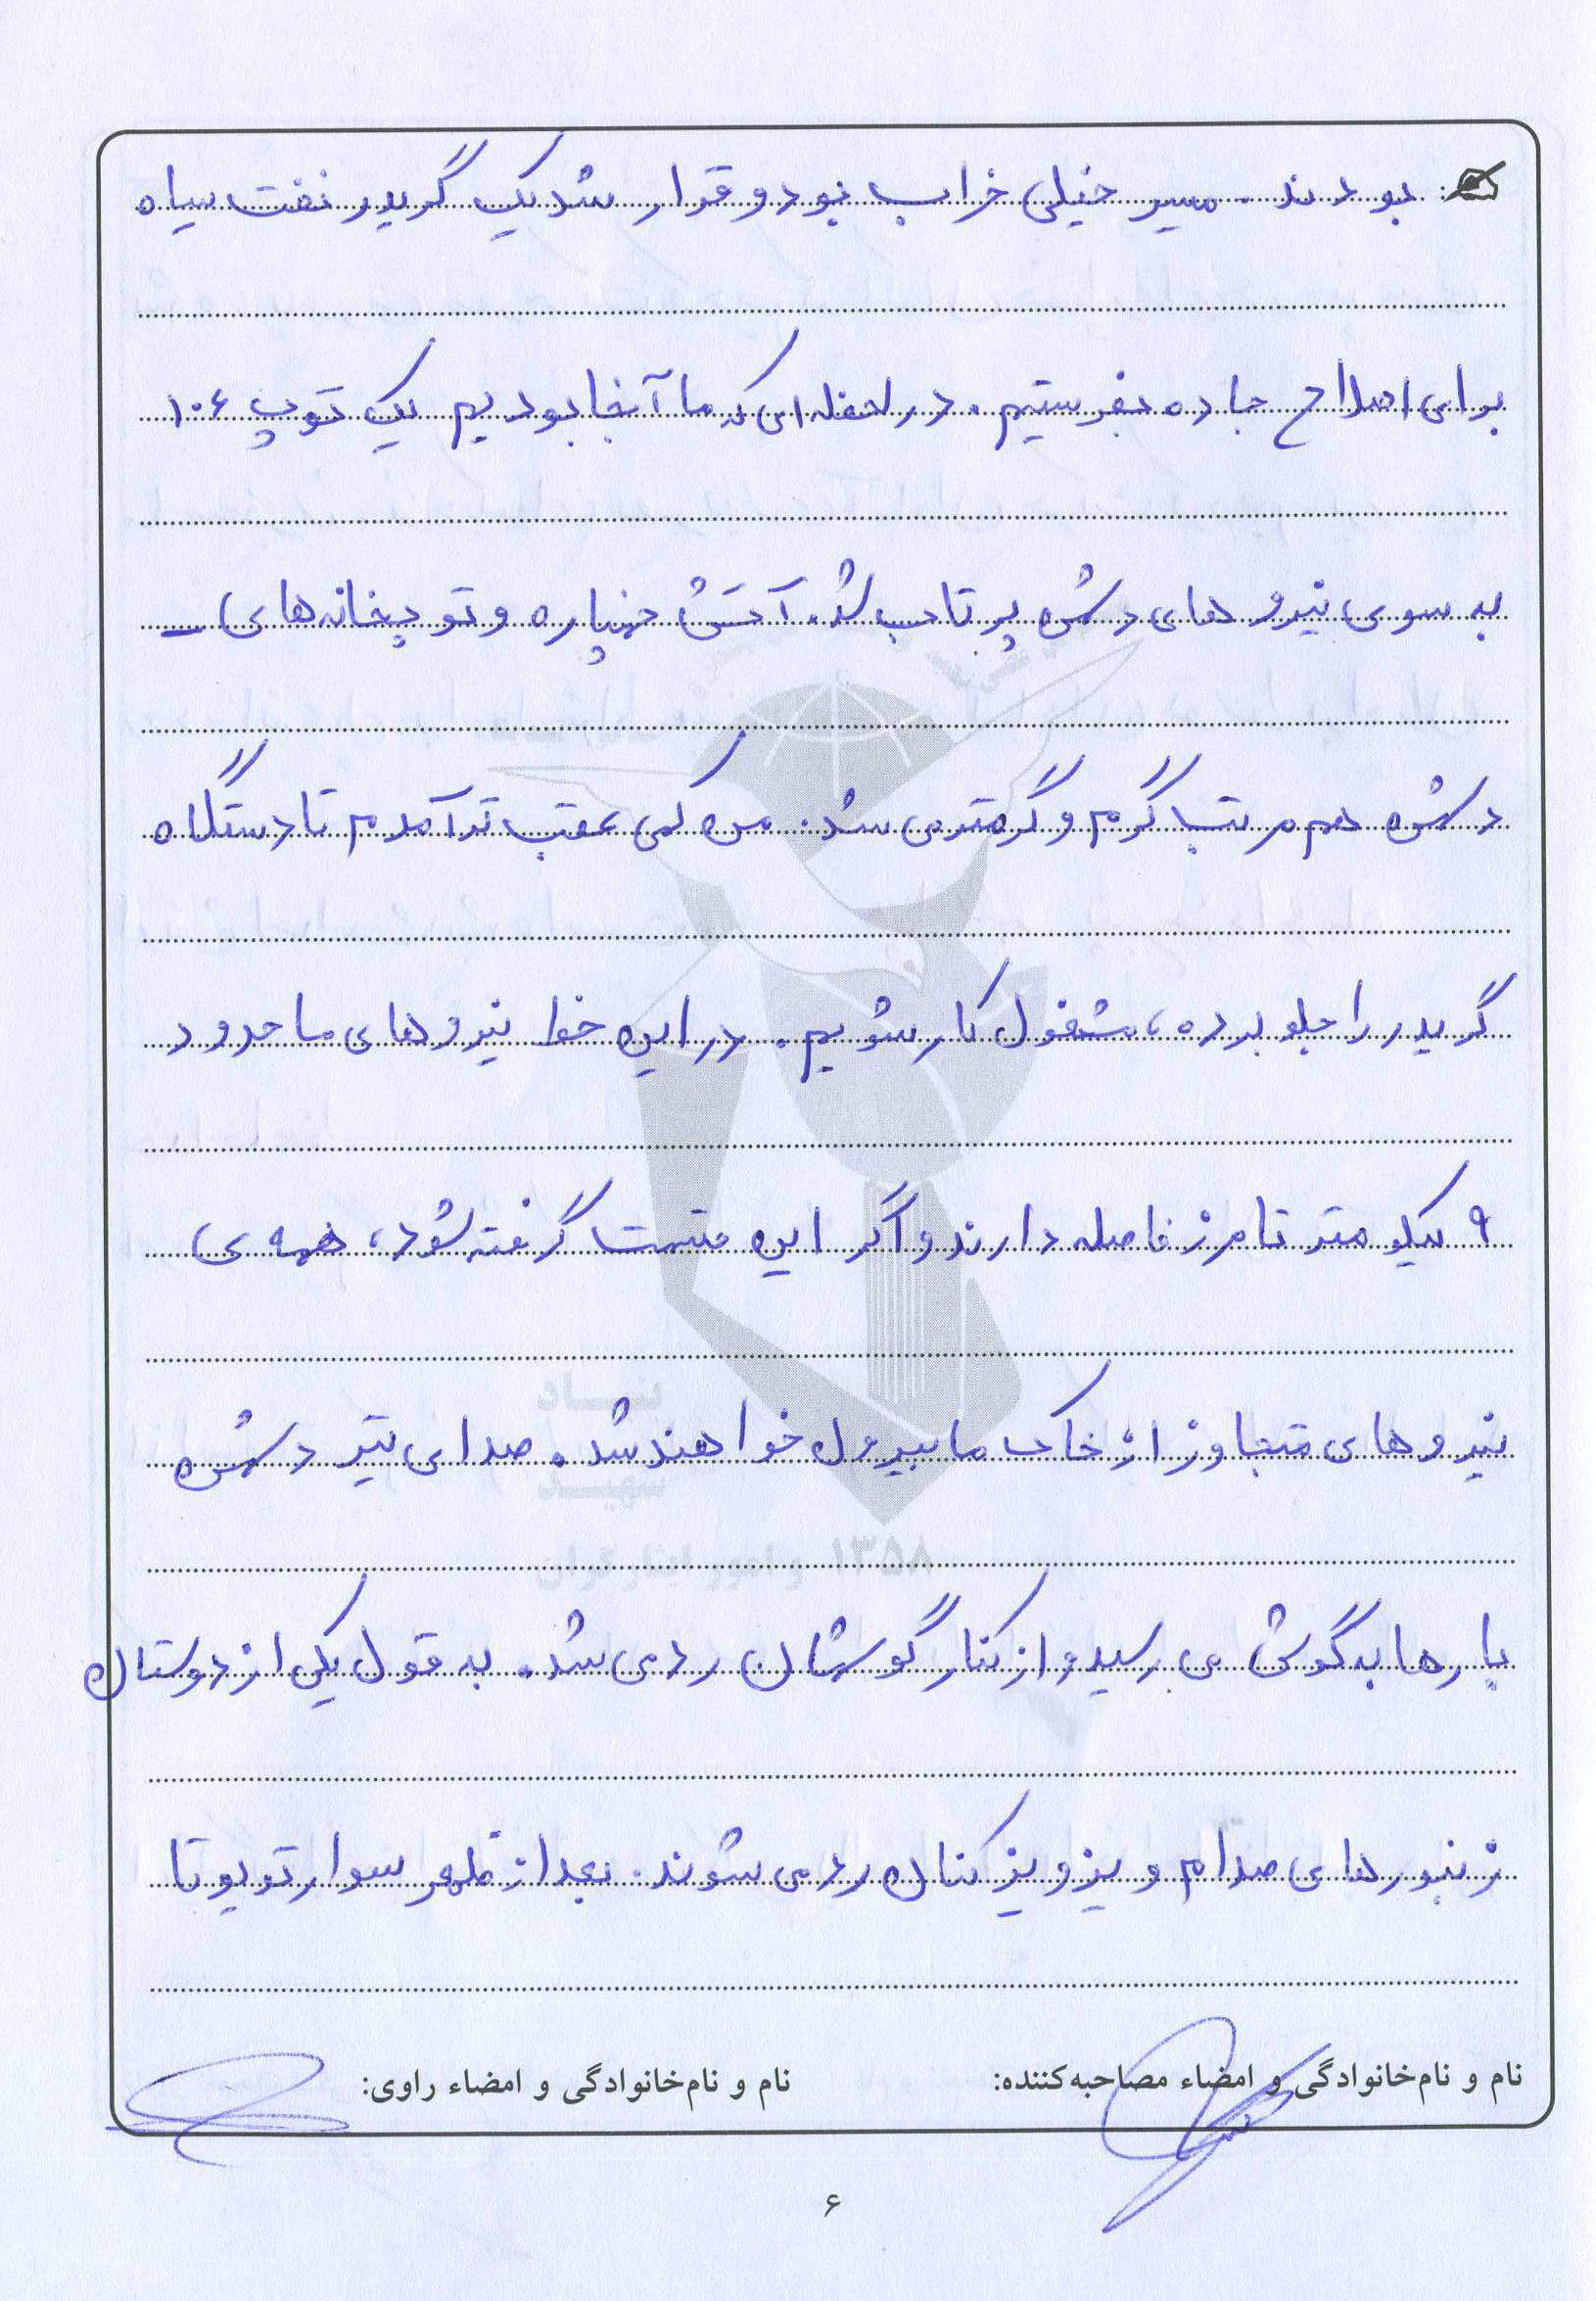 بودند. مسیر خیلی خراب بود و قرار شد یک گریدر نفت سیاه
برای اصلاح جاده بفرستیم. در لحظه ای که ما آنجا بودیم یک توپ ۱۰۶
به سوی نیروهای دشمن پرتاب شد. آتش خمپاره و توپخانه های
دشمن هم مرتباً گرم و گرمتر می شد. من کمی عقب تر آمدم تا دستگاه
گریدر را جلو برده، مشغول کار شویم. در این خط نیروهای ما حدود
۹ کیلومتر تا مرز فاصله دارند و اگر این قسمت گرفته شود، همه ی
نیروهای متجاوز از خاک ما بیرون خواهند شد. صدای تیر دشمن
بارها به گوش می رسید و از کنار گوشمان رد می شد. به قول یکی از دوستان
زنبورهای صدام ویز ویز کنان رد می شوند. بعد از ظهر سوار تویوتا
نام و نام‌خانوادگی و امضاء مصاحبه‌کننده:
نام و نام‌خانوادگی و امضاء راوی:
۶
بنیاد
شهید
و امور ایثارگران ۱۳۵۸